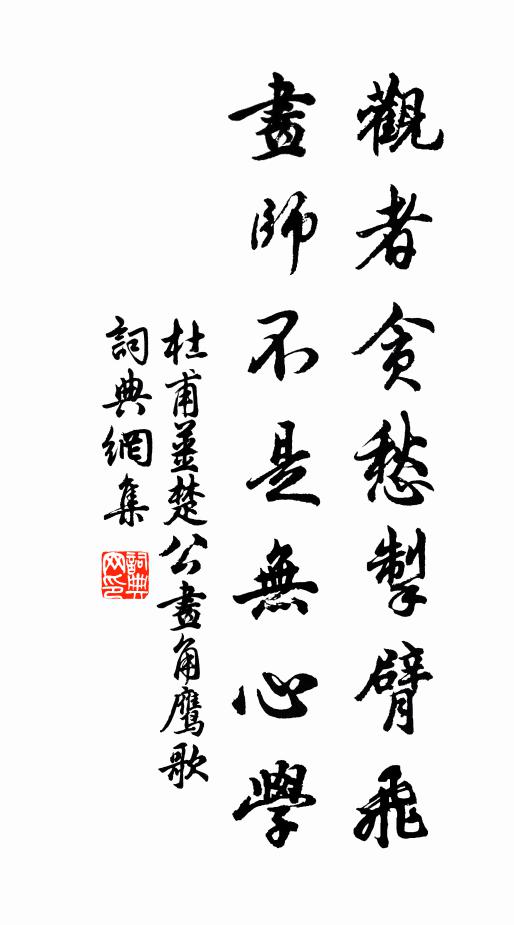 觀者貪愁掣臂飛
畫師不是無心學
杜甫姜楚公畫角鷹歌
詞典網集
詞典
网印